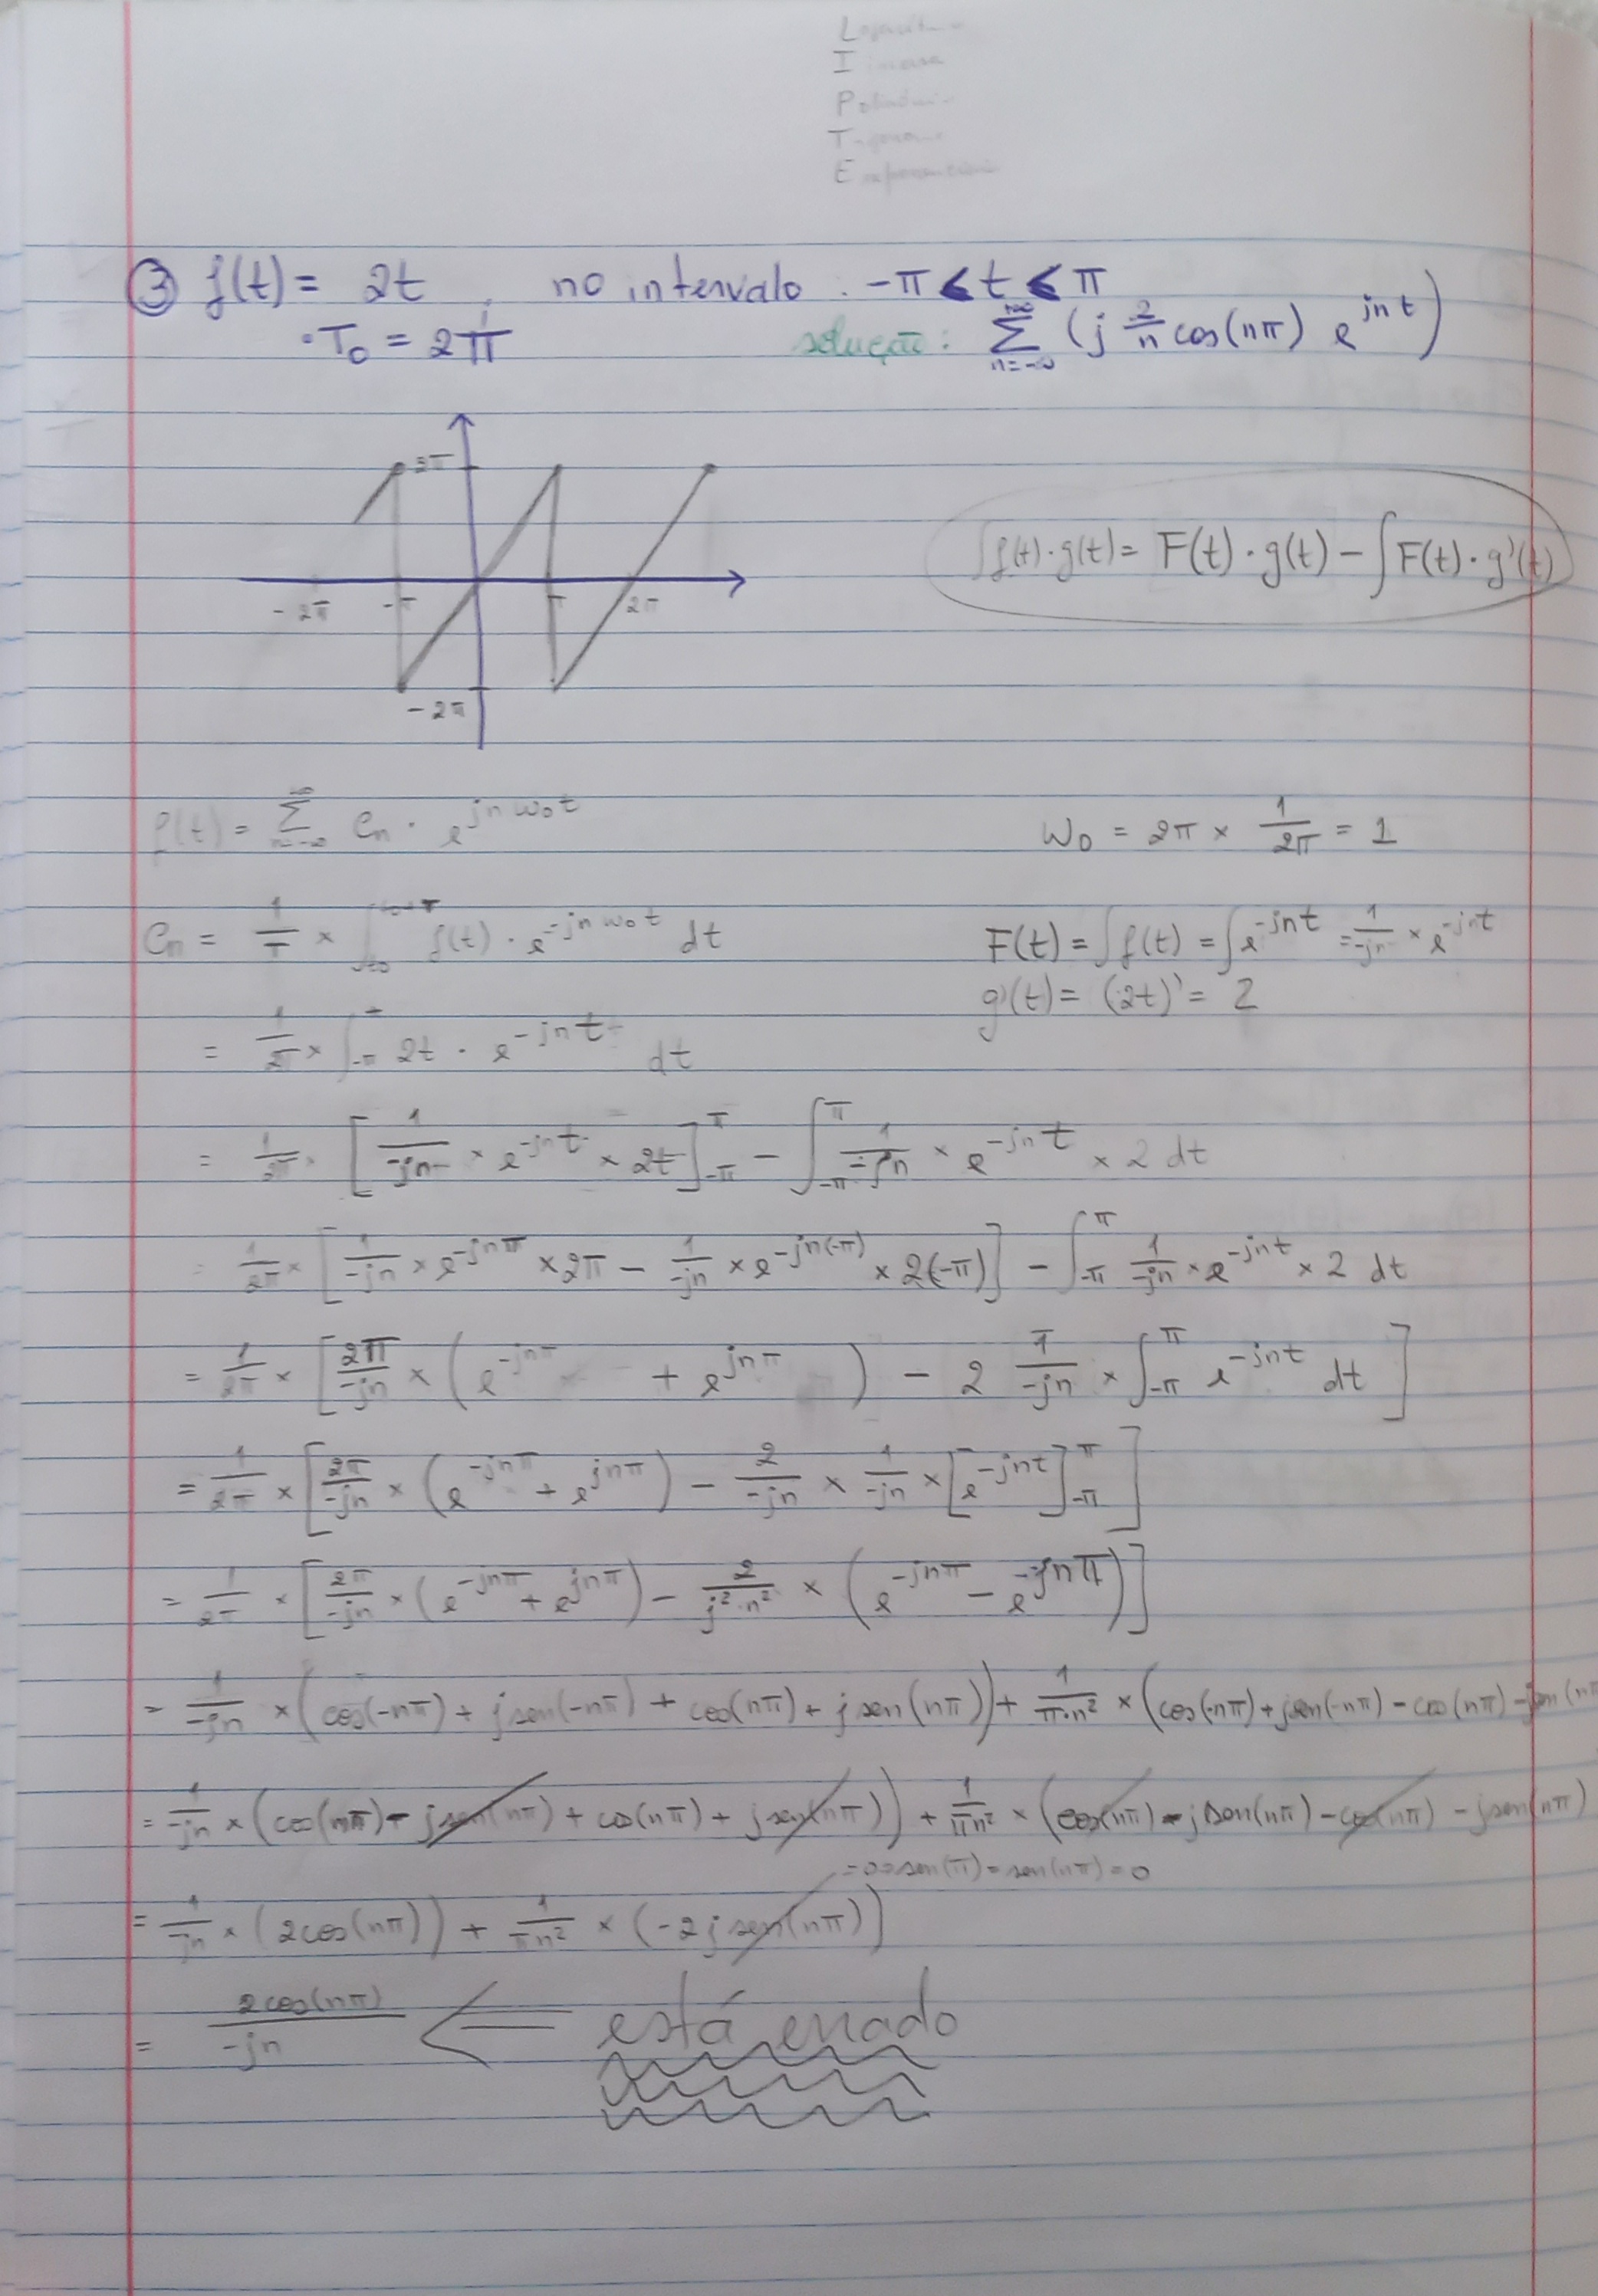 L
I inversa
P
T
E
③ f(t) = 2t , no intervalo : -π < t < π
• T₀ = 2π
solução : ∑_{n=-∞}^{+∞} (j 2/n cos(nπ) e^{jnt})
2π
-2π -π π 2π
-2π
∫f(t)·g(t) = F(t)·g(t) - ∫F(t)·g'(t)
f(t) = ∑_{n=-∞}^{∞} Cn · e^{jnω₀t}
ω₀ = 2π × 1/2π = 1
Cn = 1/T × ∫_{t₀}^{t₀+T} f(t) · e^{-jnω₀t} dt
F(t) = ∫f(t) = ∫e^{-jnt} = 1/-jn × e^{-jnt}
g'(t) = (2t)' = 2
= 1/2π × ∫_{-π}^{π} 2t · e^{-jnt} dt
= 1/2π × [1/-jn × e^{-jnt} × 2t]_{-π}^{π} - ∫_{-π}^{π} 1/-jn × e^{-jnt} × 2 dt
= 1/2π × [1/-jn × e^{-jnπ} × 2π - 1/-jn × e^{-jn(-π)} × 2(-π)] - ∫_{-π}^{π} 1/-jn × e^{-jnt} × 2 dt
= 1/2π × [2π/-jn × (e^{-jnπ} + e^{jnπ}) - 2 1/-jn × ∫_{-π}^{π} e^{-jnt} dt]
= 1/2π × [2π/-jn × (e^{-jnπ} + e^{jnπ}) - 2/-jn × 1/-jn × [e^{-jnt}]_{-π}^{π}]
= 1/2π × [2π/-jn × (e^{-jnπ} + e^{jnπ}) - 2/j²·n² × (e^{-jnπ} - e^{jnπ})]
= 1/-jn × (cos(-nπ) + jsen(-nπ) + cos(nπ) + jsen(nπ)) + 1/π·n² × (cos(-nπ) + jsen(-nπ) - cos(nπ) - jsen(nπ
= 1/-jn × (cos(nπ) - jsen(nπ) + cos(nπ) + jsen(nπ)) + 1/πn² × (cos(nπ) - jsen(nπ) - cos(nπ) - jsen(nπ)
sen(π) = sen(nπ) = 0
= 1/-jn × (2cos(nπ)) + 1/πn² × (-2jsen(nπ))
= 2cos(nπ)/-jn ⇐ está errado